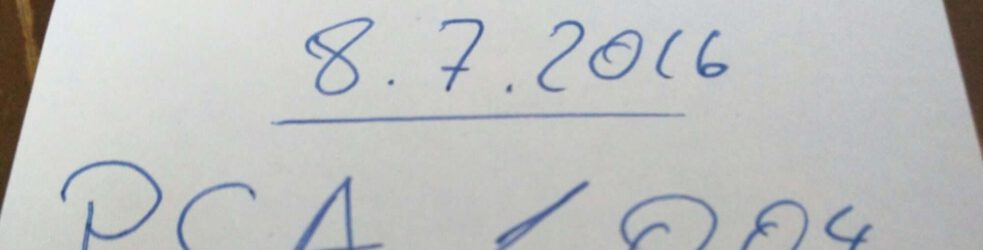 8.7.2016
PCA /